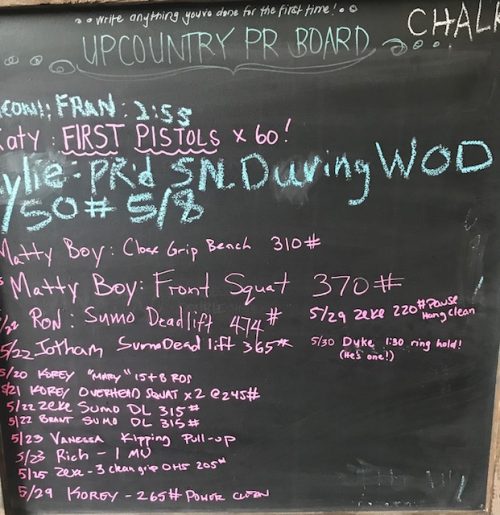 Write anything you've done for the first time!
CHALK
UPCOUNTRY PR BOARD
FRAN: 2:55
Katy FIRST PISTOLS x 60!
ylie - PR'd SN. During WOD
/50# 5/8
Matty Boy: Close Grip Bench 310#
Matty Boy: Front Squat 370#
5/22 RON: Sumo Deadlift 474#
5/29 Zeke 220# Pause Hang clean
5/22 Jotham Sumo Dead lift 365#
5/30 Dyke 1:30 ring hold!
(He's one!)
5/20 KOREY "MARY" 15+8 RDS
5/21 KOREY OVERHEAD SQUAT x2 @245#
5/22 Zeke Sumo DL 315#
5/22 BRANT SUMO DL 315#
5/23 VANESSA Kipping Pull-up
5/23 Rich - 1 MU
5/25 Zeke - 3 clean grip OHS 205#
5/29 KOREY - 265# POWER CLEAN